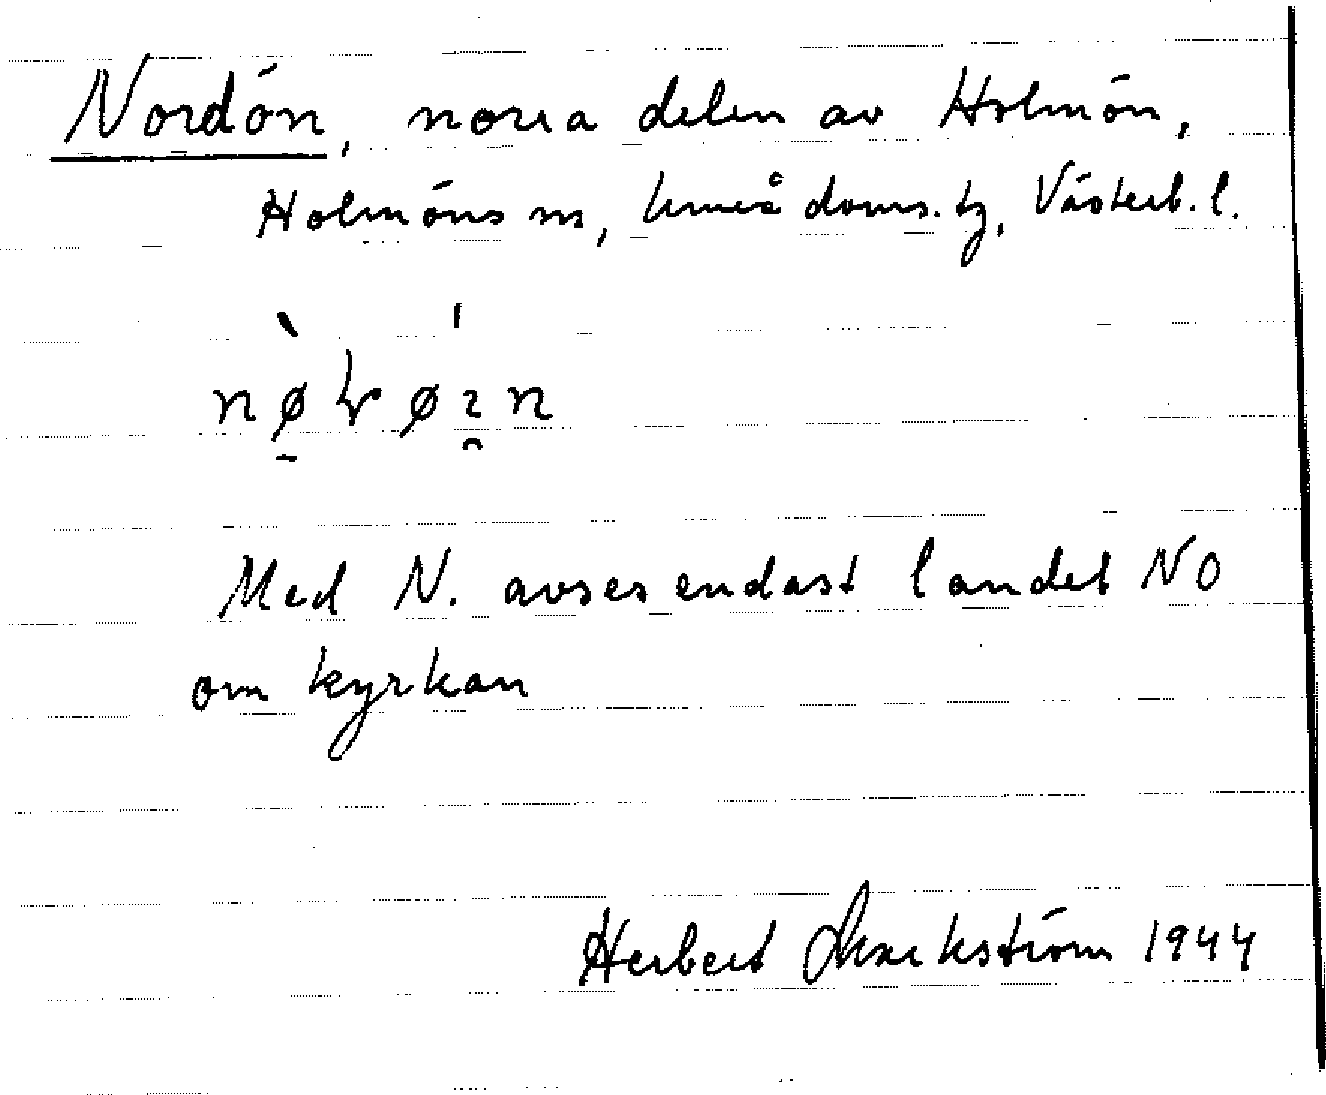 Nordön, norra delen av Holmön,
Holmöns sn, Umeå doms. tg, Västerb. l.
Med N. avses endast landet NO
om kyrkan
Herbert Markström 1944